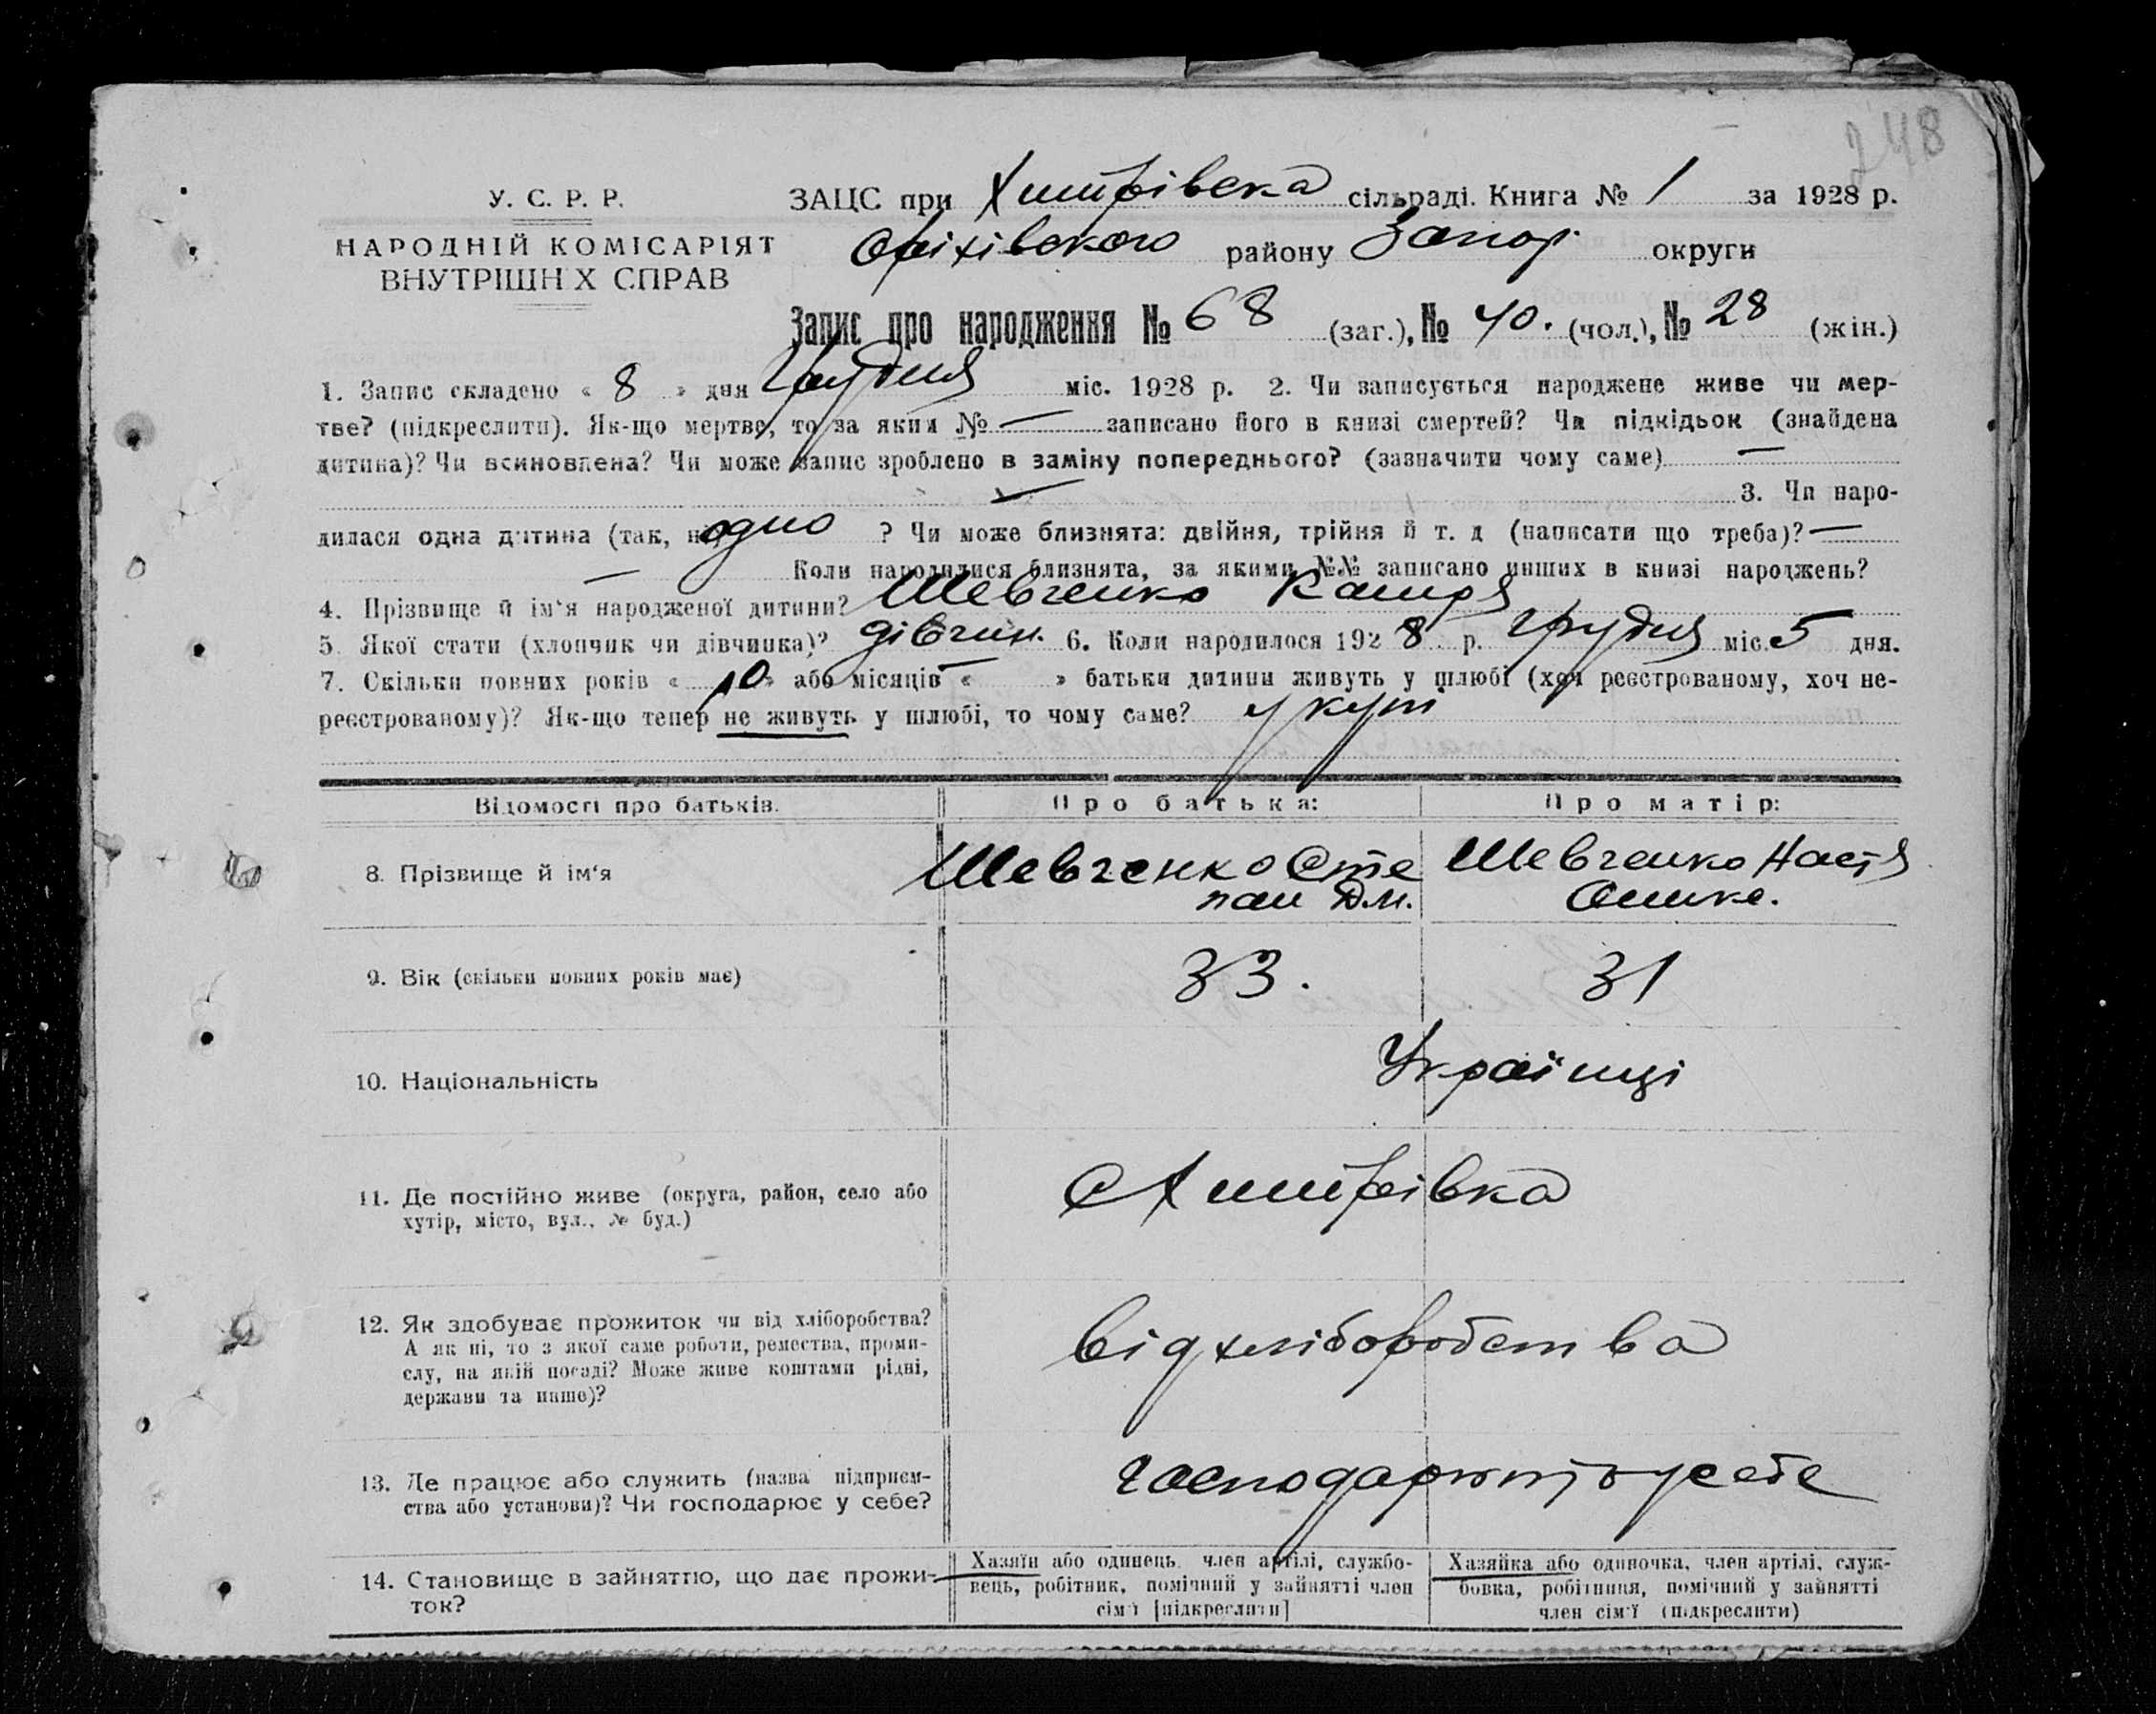 248
У. С. Р. Р.
НАРОДНІЙ КОМІСАРІЯТ
ВНУТРІШН Х СПРАВ
ЗАЦС при Хитрівська сільраді. Книга № 1 за 1928 р.
Оріхівського району Запор. округи
Запис про народження № 68 (заг.), № 40. (чол.), № 28 (жін.)
1. Запис складено « 8 » дня Грудня міс. 1928 р. 2. Чи записується народжене живе чи мер-
тве? (підкреслити). Як-що мертве, то за яким № — записано його в книзі смертей? Чи підкідьок (знайдена
дитина)? Чи всиновлена? Чи може запис зроблено в заміну попереднього? (зазначити чому саме) —
— 3. Чи наро-
дилася одна дитина (так, ні) одно ? Чи може близнята: двійня, трійня й т. д (написати що треба)? —
— Коли народилися близнята, за якими №№ записано инших в книзі народжень?
4. Прізвище й ім'я народженої дитини? Шевченко
5. Якої стати (хлопчик чи дівчинка)? дівчин. 6. Коли народилося 1928 р. Грудня міс. 5 дня.
7. Скільки повних років « 10 » або місяців « — » батьки дитини живуть у шлюбі (хоч реєстрованому, хоч не-
реєстрованому)? Як-що тепер не живуть у шлюбі, то чому саме?
Відомості про батьків. Про батька: Про матір:
8. Прізвище й ім'я Шевченко Сте Шевченко Настя
пан Дм.
9. Вік (скільки повних років має) 33. 31
10. Національність Українці
11. Де постійно живе (округа, район, село або
хутір, місто, вул., № буд.) С Хитрівка
12. Як здобуває прожиток чи від хліборобства?
А як ні, то з якої саме роботи, ремества, проми-
слу, на якій посаді? Може живе коштами рідні,
держави та инше)? від хліборобства
13. Де працює або служить (назва підприєм-
ства або установи)? Чи господарює у себе? господарюють у себе
14. Становище в зайняттю, що дає прожи-
ток?
Хазяїн або одинець, член артілі, службо-
вець, робітник, помічний у зайнятті член
сім'ї [підкреслити]
Хазяйка або одиночка, член артілі, служ-
бовка, робітниця, помічний у зайнятті
член сім'ї (підкреслити)